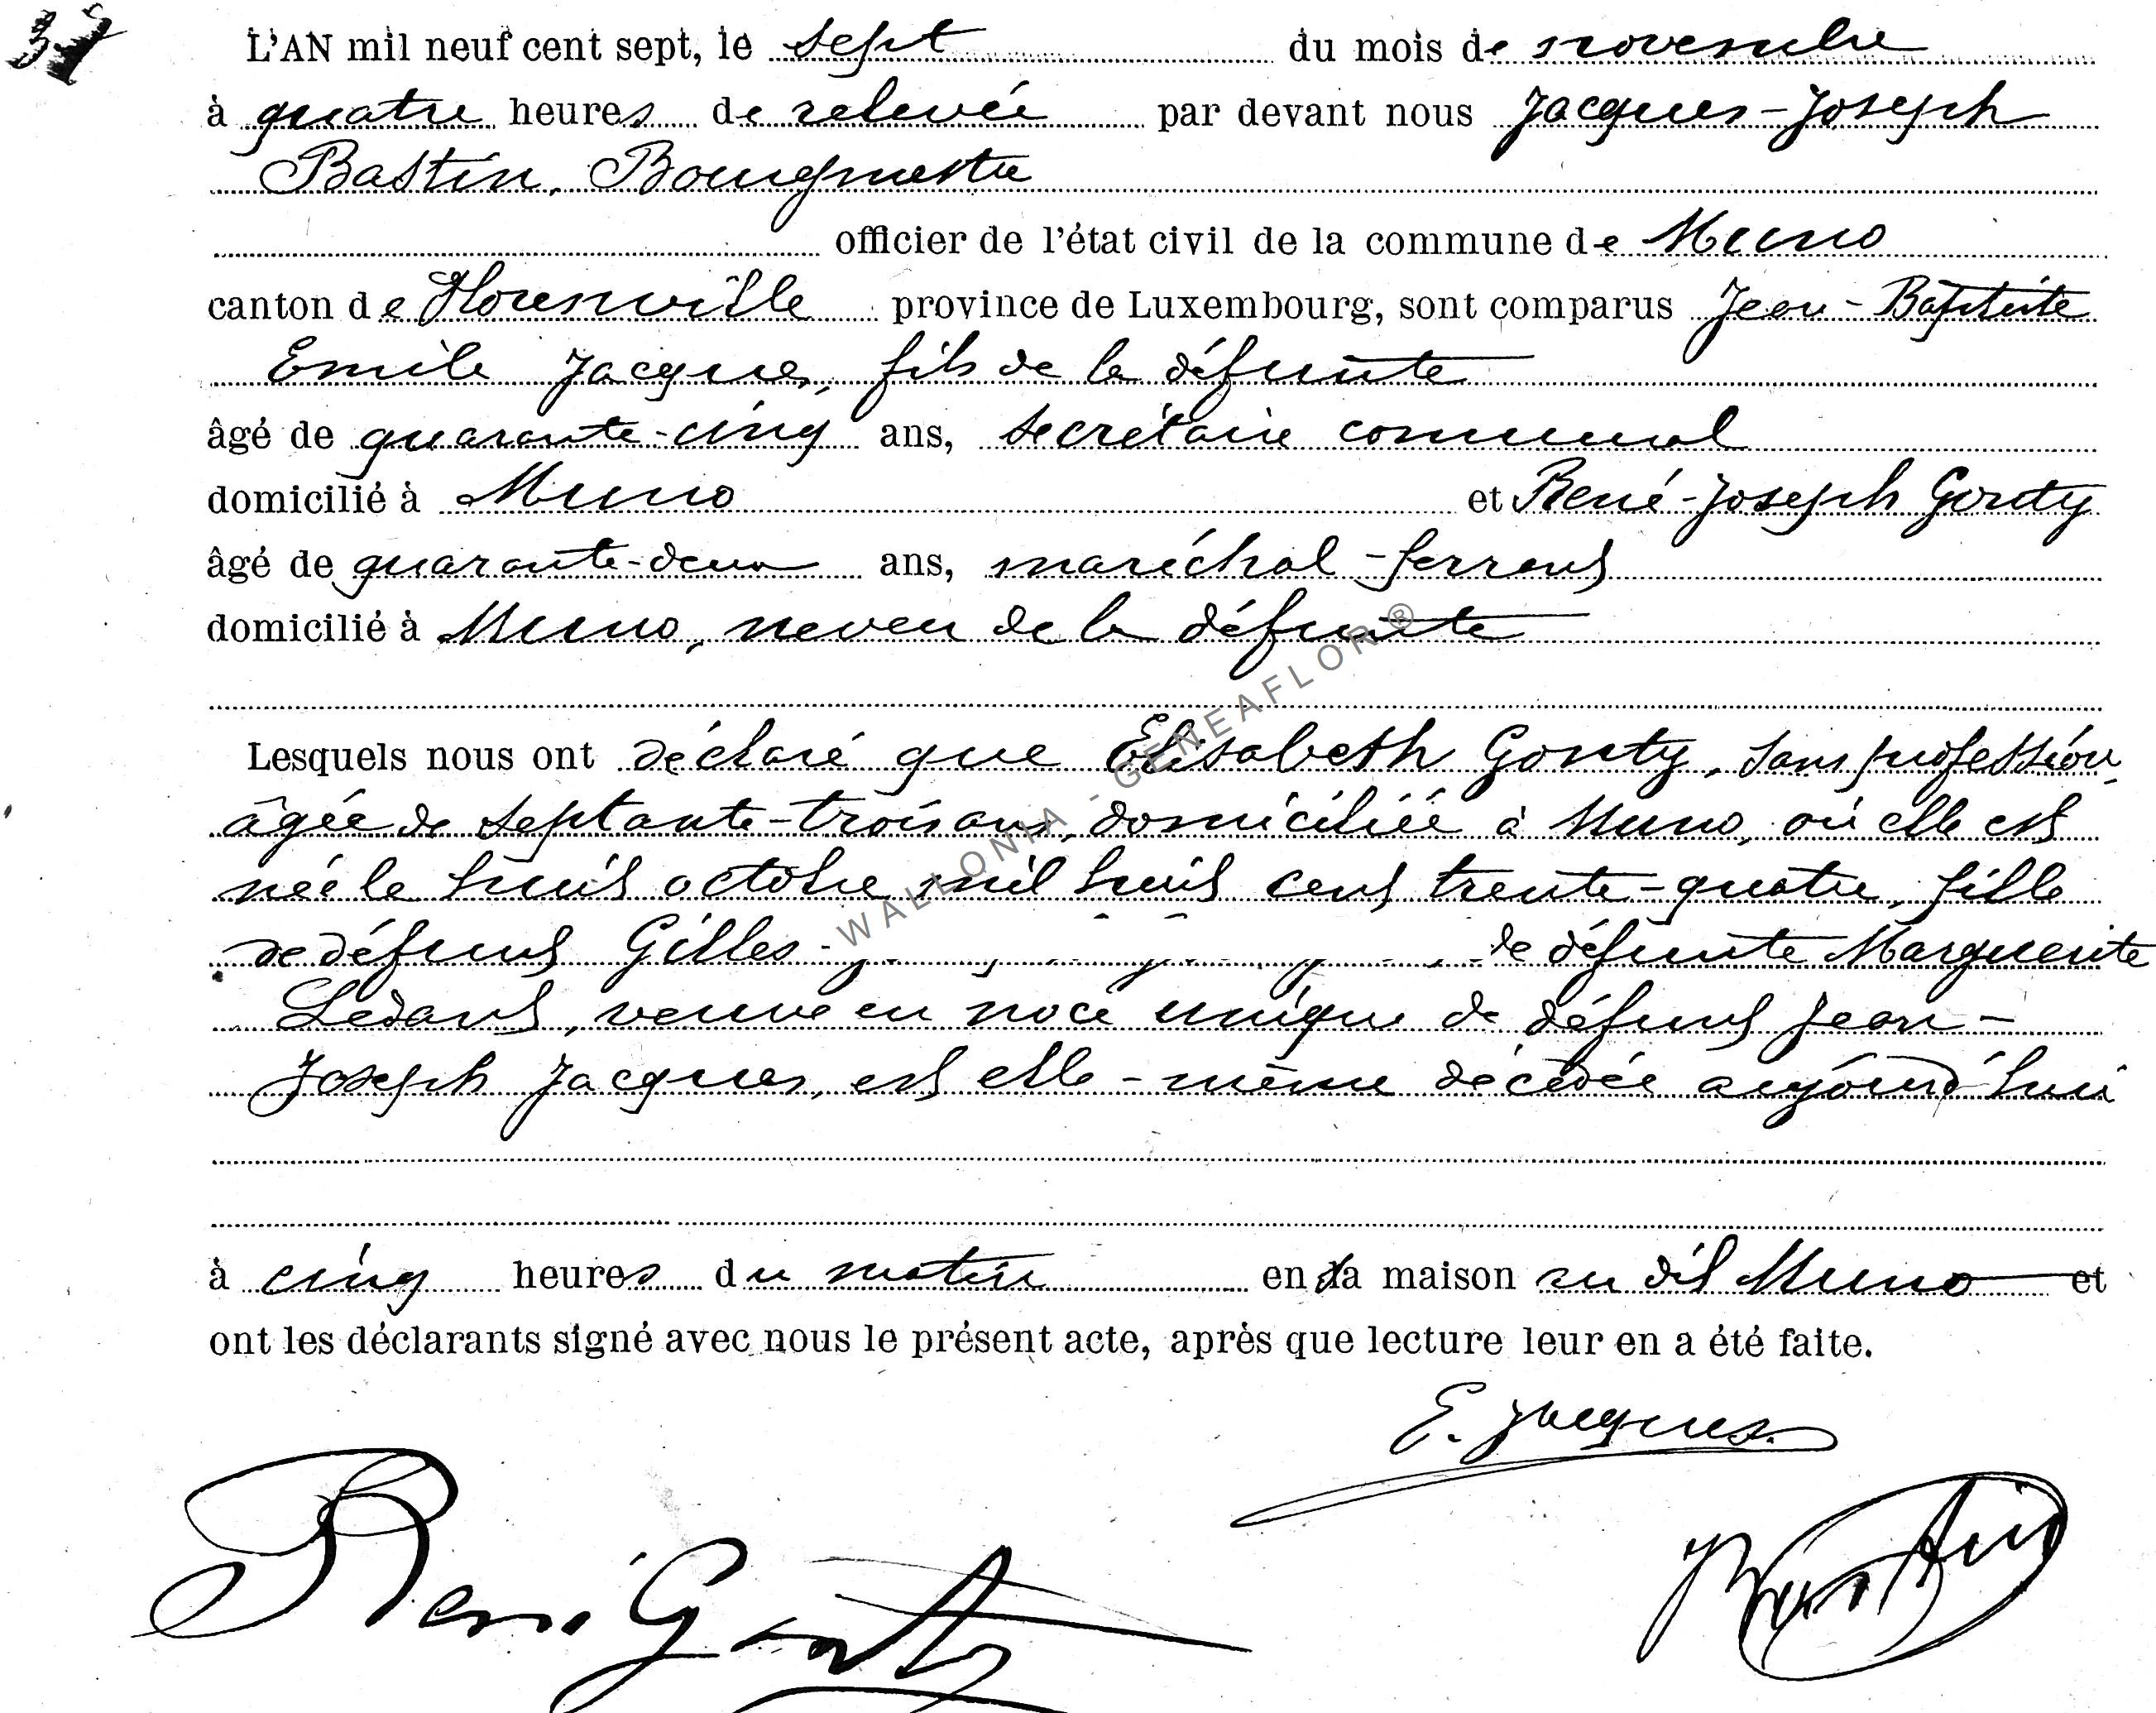 37
L'AN mil neuf cent sept, le sept du mois de novembre
à quatre heures de relevée par devant nous Jacques-Joseph
Bastin, Bourgmestre
officier de l'état civil de la commune de Muno
canton de Florenville province de Luxembourg, sont comparus Jean-Baptiste
Emile Jacques, fils de la défunte
âgé de quarante-cinq ans, secrétaire communal
domicilié à Muno et René-Joseph Gonty
âgé de quarante-deux ans, maréchal-ferrant
domicilié à Muno, neveu de la défunte
Lesquels nous ont déclaré que Elisabeth Gonty, sans profession,
âgée de septante-trois ans, domiciliée à Muno, où elle est
née le huit octobre mil huit cent trente-quatre, fille
de défunt Gilles de défunte Marguerite
Ledant, veuve en noce unique de défunt Jean-
Joseph Jacques, est elle-même décédée aujourd'hui
à cinq heures du matin en sa maison au dit Muno et
ont les déclarants signé avec nous le présent acte, après que lecture leur en a été faite.
E. Jacques
René Gonty
JBastin
WALLONIA - GENEAFLOR ®